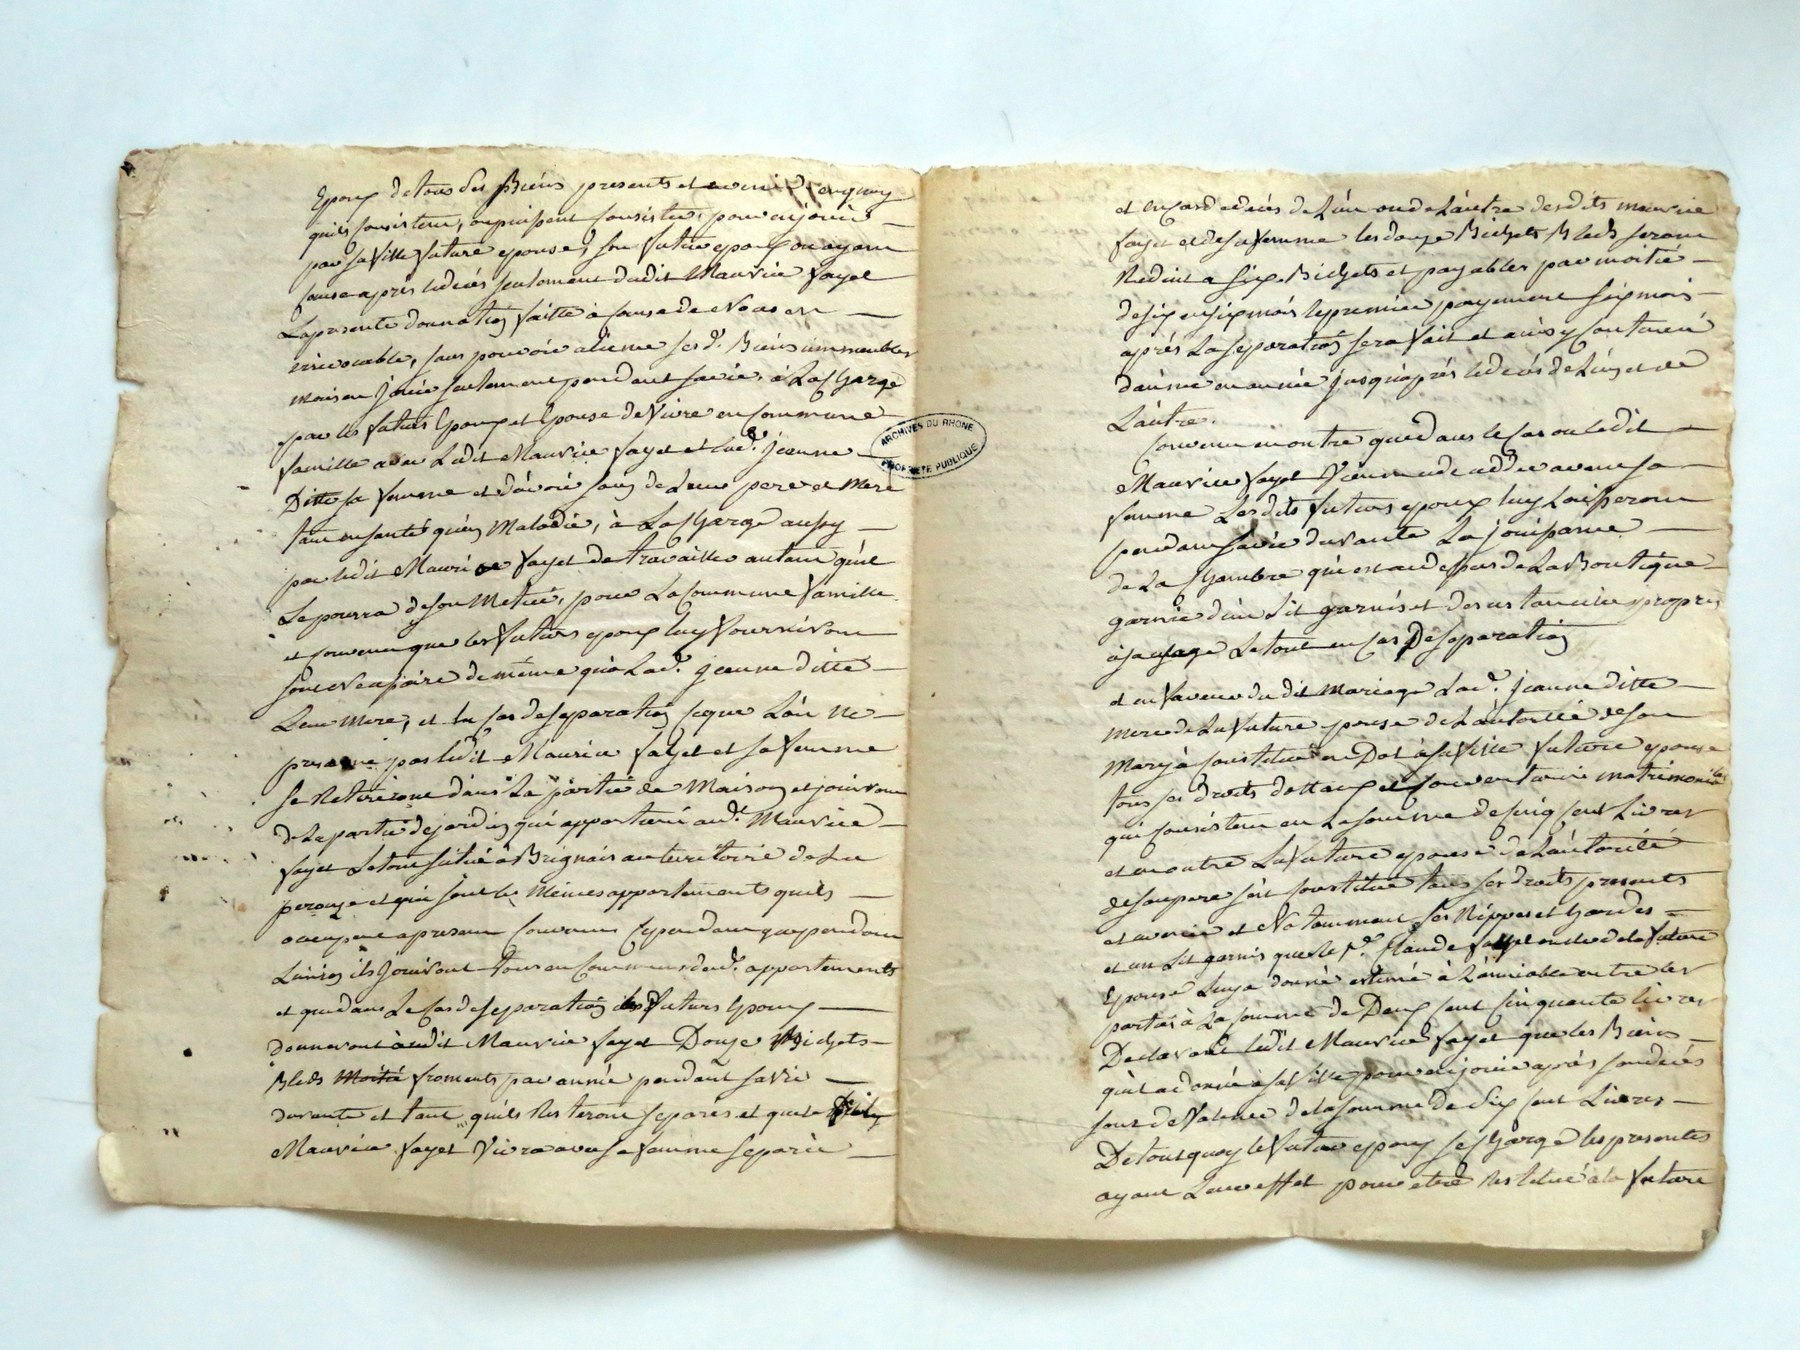 Epoux de tous ses Biens presents et avenir en quoy
quils consistent, ou puissent consister, pour en jouir
par sa fille future epouse, son futur epoux ou ayant
cause après le decés seulement dudit Maurice fayet
La presente donnation faitte à cause de Noces et
irrevocable, sans pouvoir aliener sesd. Biens immeubles
mais en jouir seulement pendant sa vie, à La Charge
par les futurs Epoux et Epouse de Vivre en Commune
famille avec Ledit Maurice fayet et lad. jeanne
Ditte sa femme et d'avoir soin de Leur pere et Mere
tant en santé qu'en Maladie, à La Charge aussy
par ledit Maurice fayet de travailler autant qu'il
Le pourra de son Metier, pour La Commune famille
et convenu que les futurs epoux luy fourniront
son necessaire de même qu'à Lad. jeanne ditte
Leur Mere, et En Cas de separation ce que L'on ne
presume pas ledit Maurice fayet et sa femme
se Retireront dans La partie de Maison et jouiront
de La partie de jardin qui appartient aud. Maurice
fayet Le tout situé à Brignais au territoire de La
perouze et qui sont les Mêmes appartements quils
occupent apresent Convenu Cependant que pendant
L'union ils jouiront tous en Commun desd. appartements
et que dans Le Cas de separation les futurs Epoux
donneront audit Maurice fayet Douze Bichets
Bleds froments par année pendant sa vie
durante et tant quils Resteront separés et que le
Maurice fayet Vivra avec sa femme separée
ARCHIVES DU RHONE
PROPRIETE PUBLIQUE
et en cas de decés de L'un ou de L'autre desdits maurice
fayet et de sa femme les douze Bichets Bleds seront
Reduit a six Bichets et payables par moitié
de six en six mois le premier payement six mois
après La separation sera fait et ainsy Continué
d'année en année jusqu'après le decés de L'un et de
L'autre.
Convenu en outre que dans le Cas ou ledit
Maurice fayet Vienne a decedder avant sa
femme Lesdits futurs epoux luy Laisseront
pendant sa vie durante La jouissance
de La Chambre qui est au dessus de La Boutique
garnie d'un Lit garnis et des ustanciles propres
à sa usage Le tout en Cas De separation
et en faveur du dit Mariage Lad. jeanne ditte
mere de La future epouse de L'autorité de son
Mary à Constitué en Dot à sa fille future epouse
tous ses droits dottaux et conventu matrimoniales
qui Consistent en La somme de Cinq Cent Livres
et en outre La future epouse de L'autorité
de son pere s'est Constitué tous ses droits presents
et avenir et Notamment ses Nippes et hardes
et un Lit garnis que le S. Claude fayet oncle de la future
Epouse Luy a donné estimé à L'amiable entre les
parties à La somme de Deux Cent Cinquante Livres
Declarant ledit Maurice fayet que les Biens
qu'il a donné à sa fille pour en jouir après son decés
sont de Valeur de la somme de Six Cent Livres
De tout quoy le futur epoux se Charge les presentes
ayant Leur effet pour etre Restitué à la future